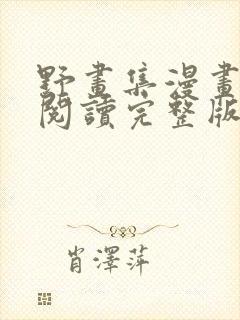 野畫集漫畫
閱讀完整版
肖澤萍